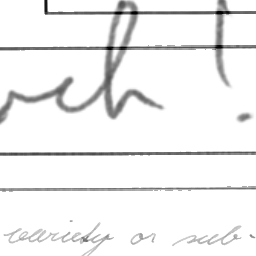 och!
variety or sub-